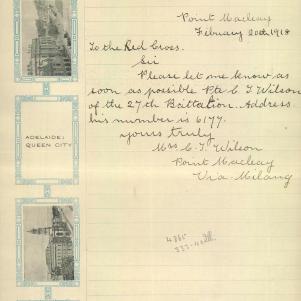 Point Macleay
February 20th 1918
To the Red Cross.
Sir
Please let me know as
soon as possible Pte C. T. Wilson
of the 27th Battation. Address.
his number is 6177.
yours truly
Mrs C. T. Wilson
Point Macleay
Via Milang
ADELAIDE:
QUEEN CITY